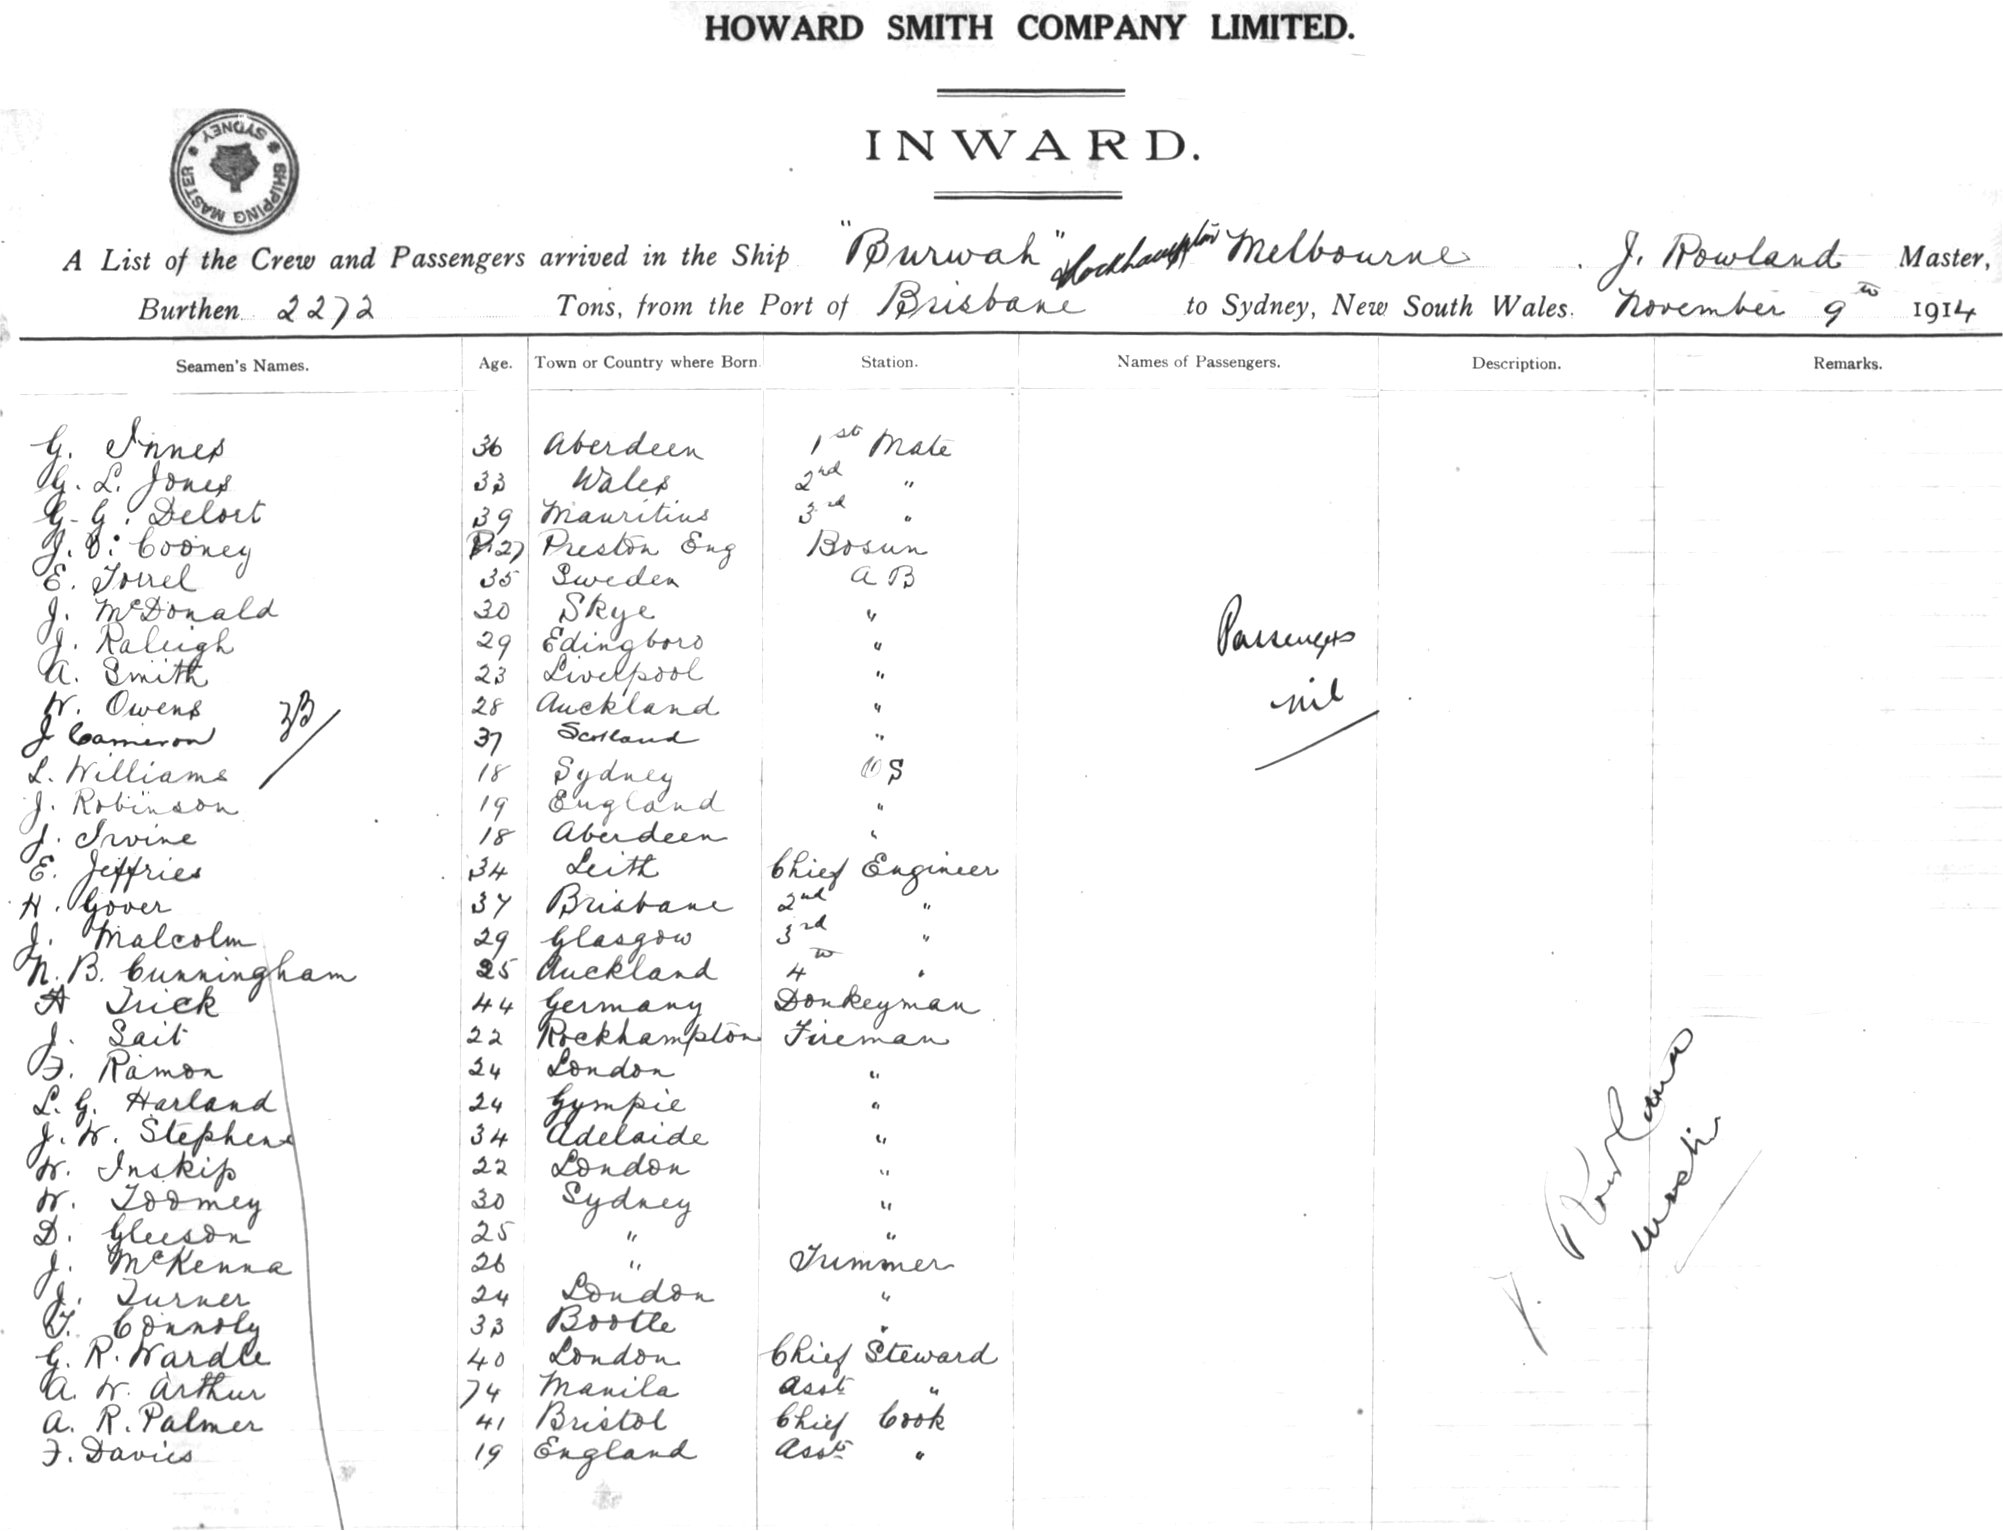 HOWARD SMITH COMPANY LIMITED.
INWARD.
SHIPPING MASTER * SYDNEY *
A List of the Crew and Passengers arrived in the Ship "Burwah" Rockhampton Melbourne . J. Rowland Master,
Burthen 2272 Tons, from the Port of Brisbane to Sydney, New South Wales. November 9th 1914
Seamen's Names. Age. Town or Country where Born. Station. Names of Passengers. Description. Remarks.
G. Innes 36 Aberdeen 1st Mate
G. L. Jones 33 Wales 2nd "
G. G. Delort 39 Mauritius 3rd "
J. Cooney 27 Preston Eng Bosun
E. Torrel 35 Sweden A B
J. McDonald 30 Skye "
J. Raleigh 29 Edingboro "
Passengers
A. Smith 23 Liverpool "
W. Owens 28 Auckland "
nil
33
J Cameron 37 Scotland "
L. Williams 18 Sydney O S
J. Robinson 19 England "
J. Irvine 18 Aberdeen "
E. Jeffries 34 Leith Chief Engineer
H. Gover 37 Brisbane 2nd "
J. Malcolm 29 Glasgow 3rd "
N. B. Cunningham 25 Auckland 4th "
A Trick 44 Germany Donkeyman
J. Sait 22 Rockhampton Fireman
F. Ramon 24 London "
L. G. Harland 24 Gympie "
J. W. Stephens 34 Adelaide "
W. Inskip 22 London "
W. Toomey 30 Sydney "
D. Gleeson 25 " "
J. McKenna 26 " Trimmer
J. Turner 24 London "
T. Connoly 33 Bootle "
G. R. Wardle 40 London Chief Steward
A. W. Arthur 74 Manila Asst "
A. R. Palmer 41 Bristol Chief Cook
F. Davies 19 England Asst "
J. Rowland
Master